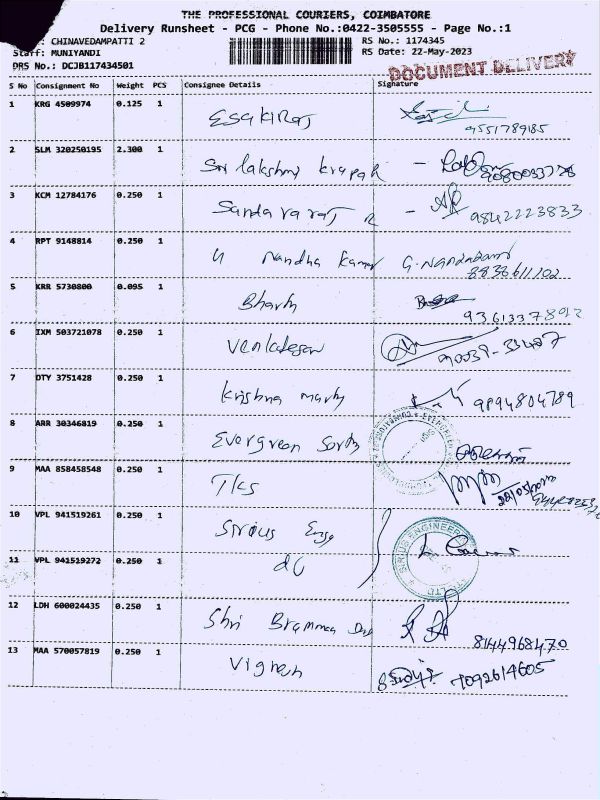 THE PROFESSIONAL COURIERS, COIMBATORE
Delivery Runsheet - PCG - Phone No.:0422-3505555 - Page No.:1
: CHINAVEDAMPATTI 2 RS No.: 1174345
Staff: MUNIYANDI RS Date: 22-May-2023
DRS No.: DCJB117434501 DOCUMENT DELIVERY
S No Consignment No Weight PCS Consignee Details Signature
1 KRG 4509974 0.125 1 Esakiraj
9551789185
2 SLM 320250195 2.300 1 Sri lakshmi krupah
3 KCM 12784176 0.250 1 Sundararaj R 9842223833
4 RPT 9148814 0.250 1 Nandha Kumar G. Nandakumar
8838611102
5 KRR 5730800 0.095 1 Bharth
6 IXM 503721078 0.250 1 Venkatesan
7 DTY 3751428 0.250 1 Krishna Murthy 9894804789
8 ARR 30346819 0.250 1 Evergreen
9 MAA 858458548 0.250 1 TKS
10 VPL 941519261 0.250 1 Sirius Engg
11 VPL 941519272 0.250 1 do SIRIUS ENGINEER
12 LDH 600024435 0.250 1 Shri 8144968470
13 MAA 570057819 0.250 1 Vignesh 7092614605